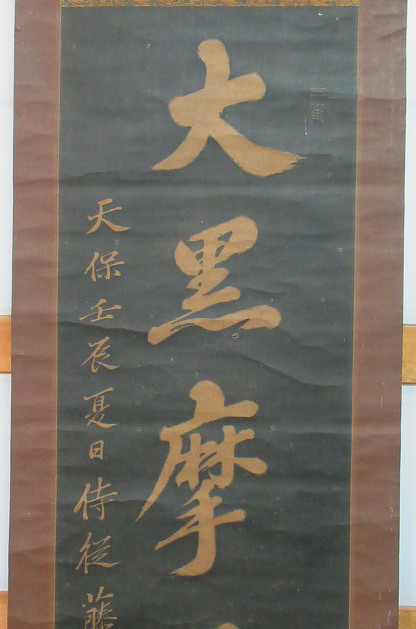 大黒摩
天保壬辰夏日侍従藤